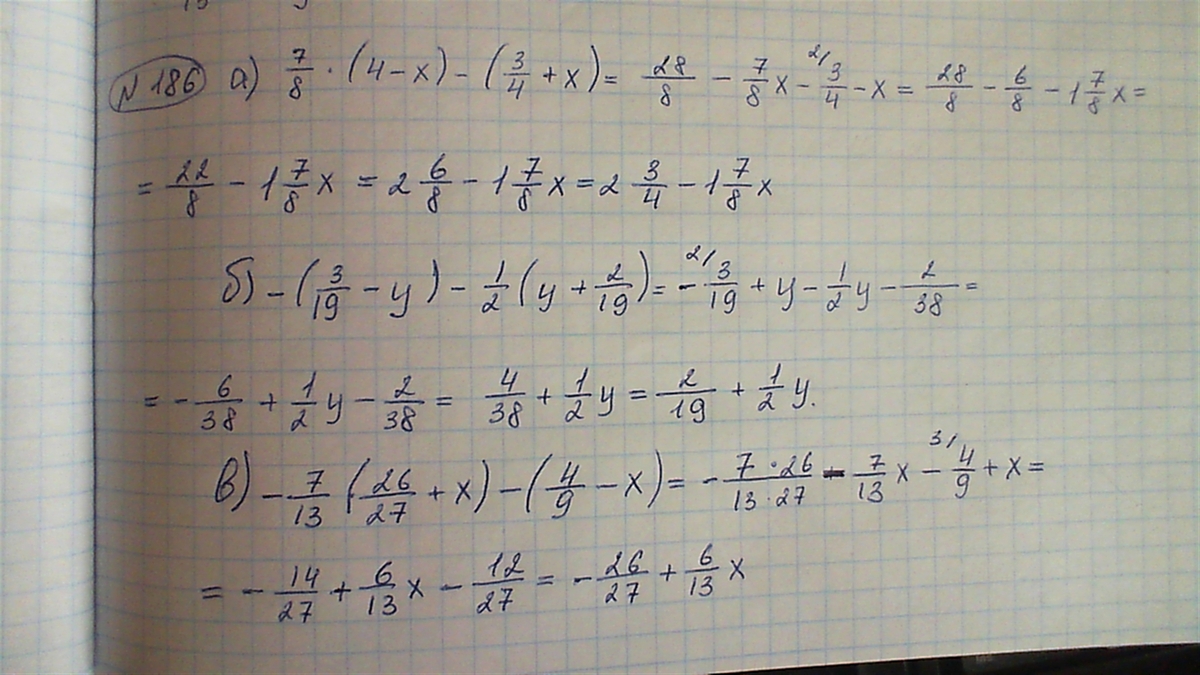 №186 а) 7/8 · (4 - x) - (3/4 + x) = 28/8 - 7/8 x - 2/ 3/4 - x = 28/8 - 6/8 - 1 7/8 x =
= 22/8 - 1 7/8 x = 2 6/8 - 1 7/8 x = 2 3/4 - 1 7/8 x
б) - (3/19 - y) - 1/2 (y + 2/19) = - 2/ 3/19 + y - 1/2 y - 2/38 =
= - 6/38 + 1/2 y - 2/38 = 4/38 + 1/2 y = 2/19 + 1/2 y.
в) - 7/13 (26/27 + x) - (4/9 - x) = - 7·26/13·27 - 7/13 x - 3/ 4/9 + x =
= - 14/27 + 6/13 x - 12/27 = - 26/27 + 6/13 x